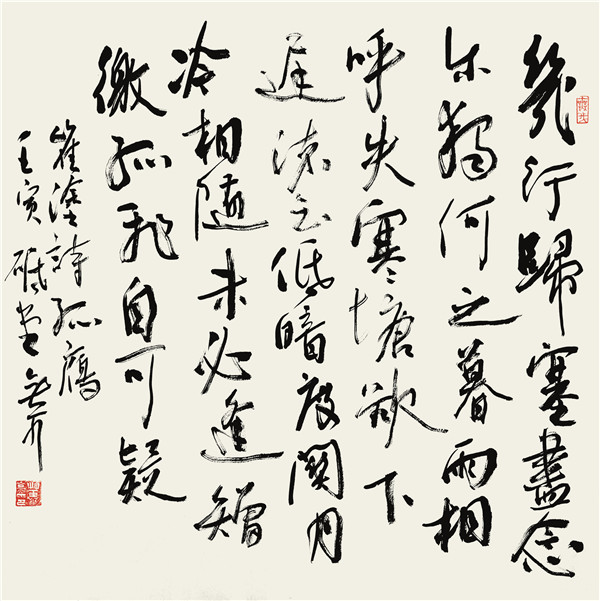 幾行歸塞盡念
尔獨何之暮雨相
呼失寒塘欲下
遲渚云低暗度關月
冷相随未必逢矰
繳孤飛自可疑
崔塗詩孤鴈
壬寅